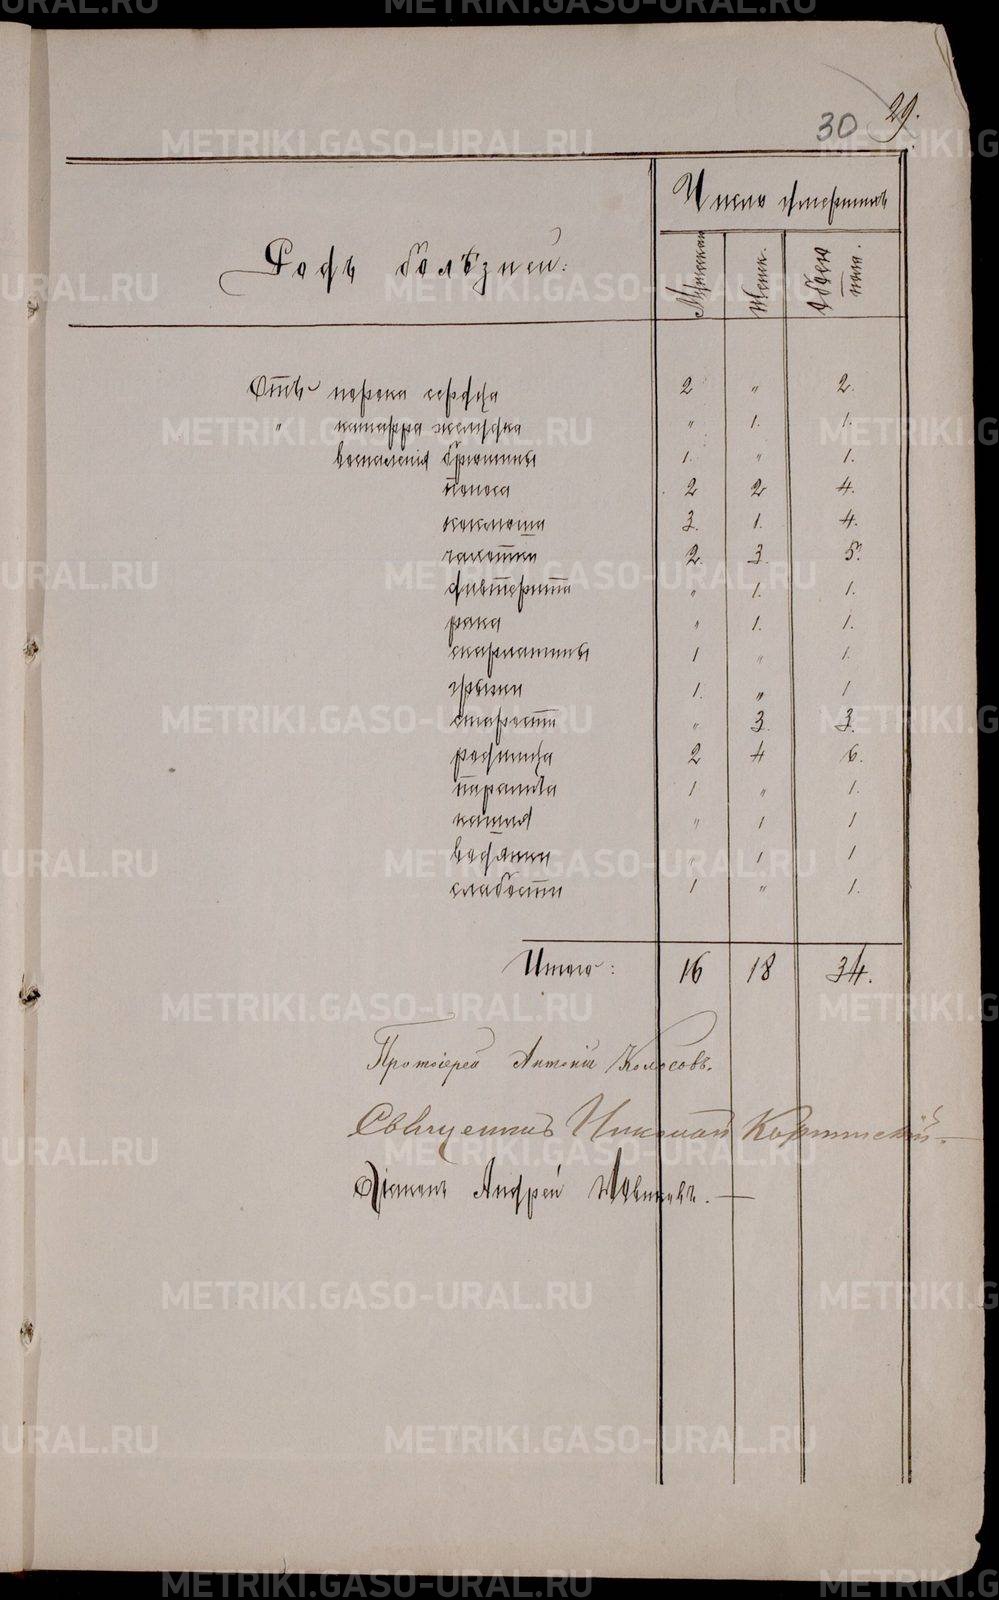 30 29.
Число умершихъ
Родъ болѣзней:
Мужескаго Женск. Обоего пола.
Отъ порока сердца 2 " 2.
" катарра желудка " 1. 1.
воспаленія брюшины 1. " 1.
поноса 2 2 4.
коклюша 3. 1. 4.
чахотки 2. 3. 5.
дифтерита " 1. 1.
рака " 1. 1.
скарлатины 1 " 1.
грыжи 1. " 1
старости " 3. 3.
родимца 2 4 6.
паралича 1 " 1.
кашля " 1 1
водянки " 1 1
слабости 1 " 1.
Итого: 16 18 34.
Протоіерей Антоній Колосовъ.
Священникъ Николай
Діаконъ Андрей
METRIKI.GASO-URAL.RU